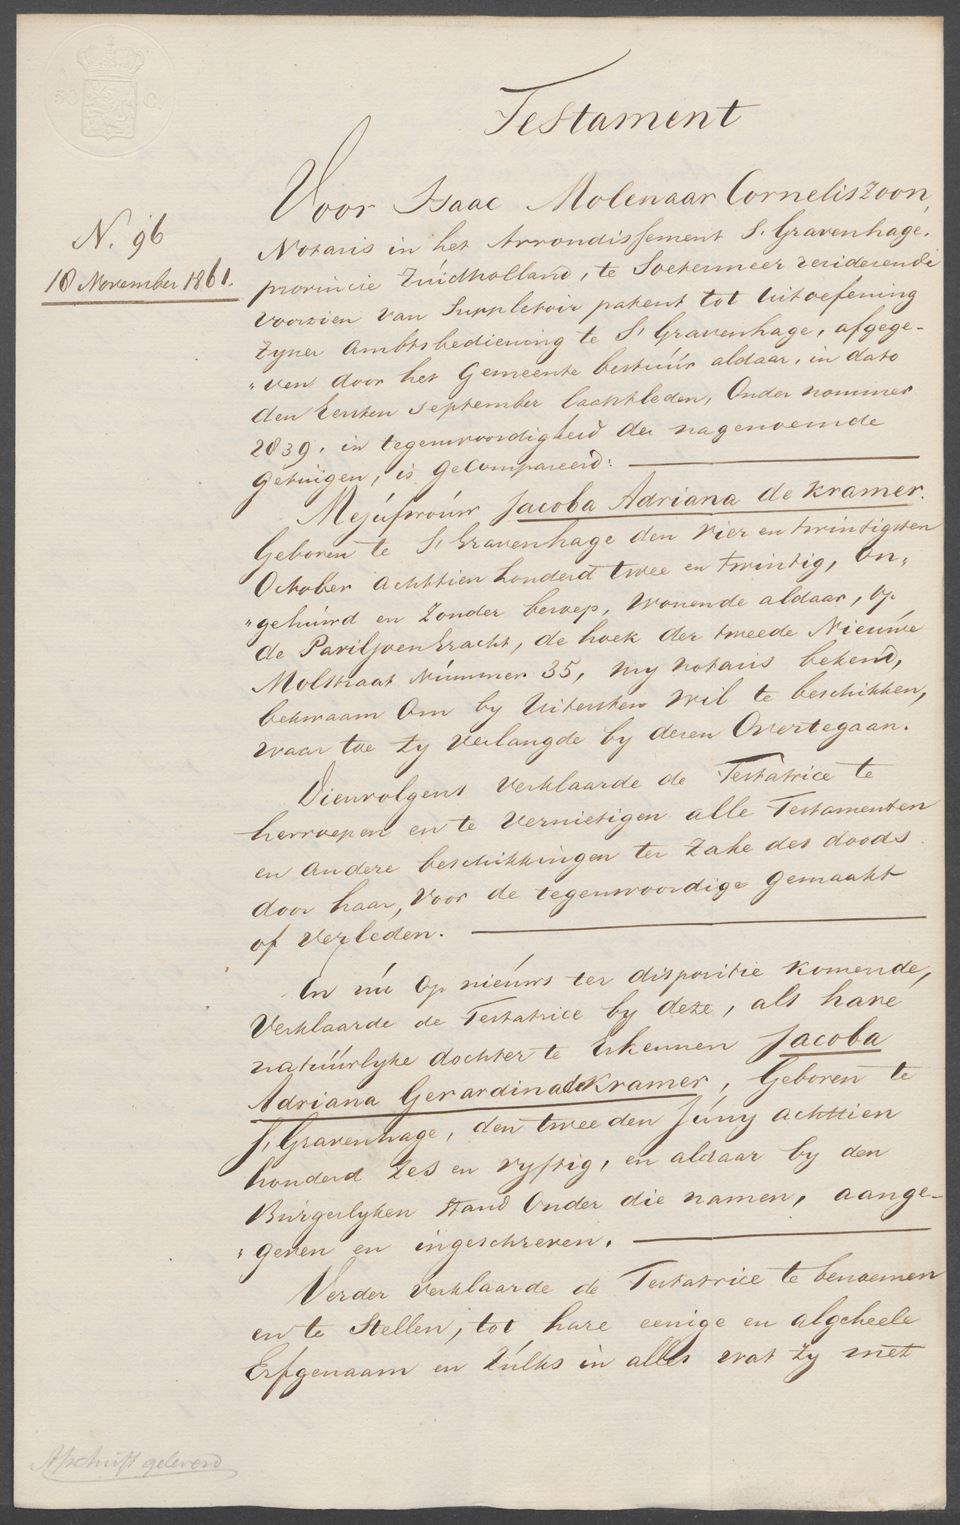 Testament
N. 96
18 November 1861.
Voor Isaac Molenaar Corneliszoon,
Notaris in het Arrondissement S. Gravenhage,
provincie Zuidholland, te Soetermeer resideerende
voorzien van Suppletoir patent tot uitoefening
zyner ambtsbediening te S. Gravenhage, afgege-
„ven door het Gemeente bestuur aldaar, in dato
den Eersten September laatstleden, Onder nommer
2839, in tegenwoordigheid der nagenoemde
getuigen, is gecompareerd:
Mejufvrouw Jacoba Adriana de Kramer.
Geboren te S. Gravenhage den vier en twintigsten
October achttien honderd twee en twintig, on„
„gehuwd en zonder beroep, wonende aldaar, op
de Paviljoensgracht, de hoek der tweede Nieuwe
Molstraat Nummer 35, my notaris bekend,
bekwaam om by Uitersten wil te beschikken,
waar toe zy verlangde by dezen Overtegaan.
Dienvolgens verklaarde de Testatrice te
herroepen en te vernietigen alle Testamenten
en andere beschikkingen ter zake des doods
door haar, voor de tegenwoordige gemaakt
of verleden.
En nu op nieuws ter dispositie komende,
Verklaarde de Testatrice by deze, als hare
natuurlyke dochter te Erkennen Jacoba
Adriana Gerardina de Kramer, Geboren te
S. Gravenhage, den tweeden Juny achttien
honderd zes en vyftig, en aldaar by den
Burgerlyken Stand onder die namen, aange-
„geven en ingeschreven.
Verder verklaarde de Testatrice te benoemen
en te Stellen, tot hare eenige en algeheele
Erfgenaam en zulks in alles wat zy met
Afschrift geleverd